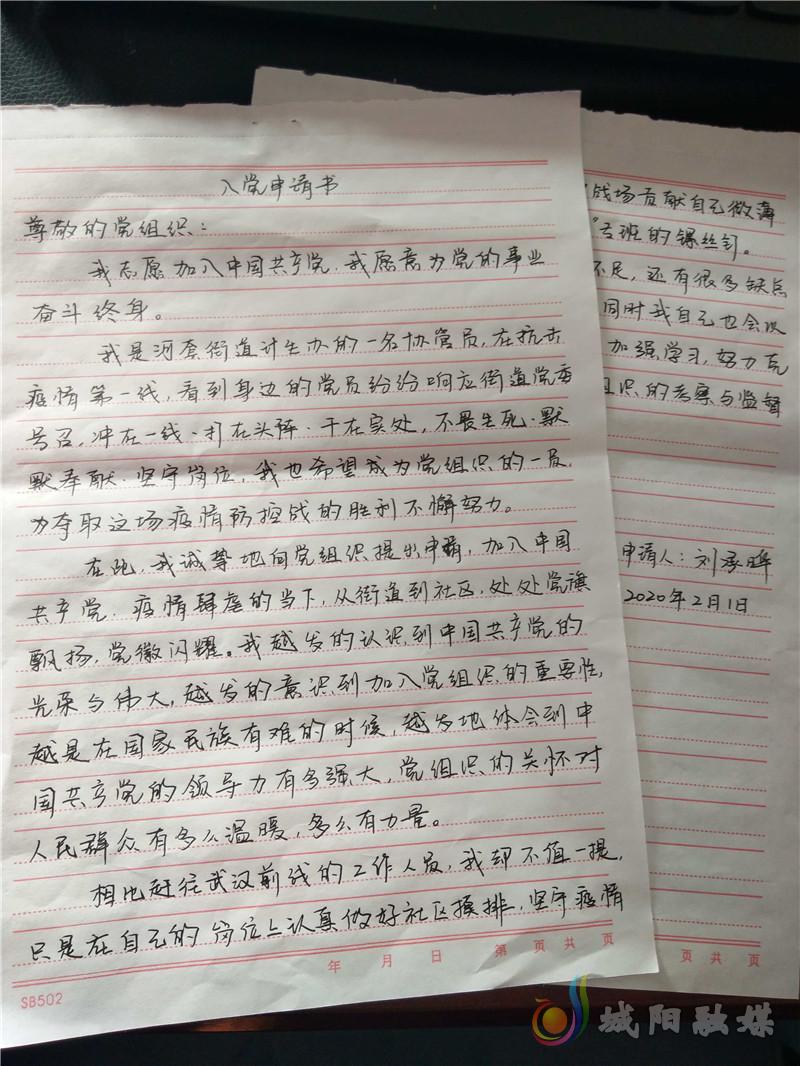 入党申请书
尊敬的党组织：
我志愿加入中国共产党，我愿意为党的事业
奋斗终身。
我是河套街道计生办的一名协管员，在抗击
疫情第一线，看到身边的党员纷纷响应街道党委
号召，冲在一线、打在头阵、干在实处，不畏生死、默
默奉献、坚守岗位，我也希望成为党组织的一员，
为夺取这场疫情防控战的胜利不懈努力。
在此，我诚挚地向党组织提出申请，加入中国
共产党。疫情肆虐的当下，从街道到社区，处处党旗
飘扬，党徽闪耀。我越发的认识到中国共产党的
光荣与伟大，越发的意识到加入党组织的重要性，
越是在国家民族有难的时候，越发地体会到中
国共产党的领导力有多强大，党组织的关怀对
人民群众有多么温暖，多么有力量。
相比赶往武汉前线的工作人员，我却不值一提，
只是在自己的岗位上认真做好社区摸排，坚守疫情
年 月 日 第 页 共 页
SB502
战场贡献自己微薄
班的螺丝钉。
不足，还有很多缺点
同时我自己也会以
加强学习，努力克
组织的考察与监督
申请人：刘承晖
2020年2月1日
页 共 页
城阳融媒